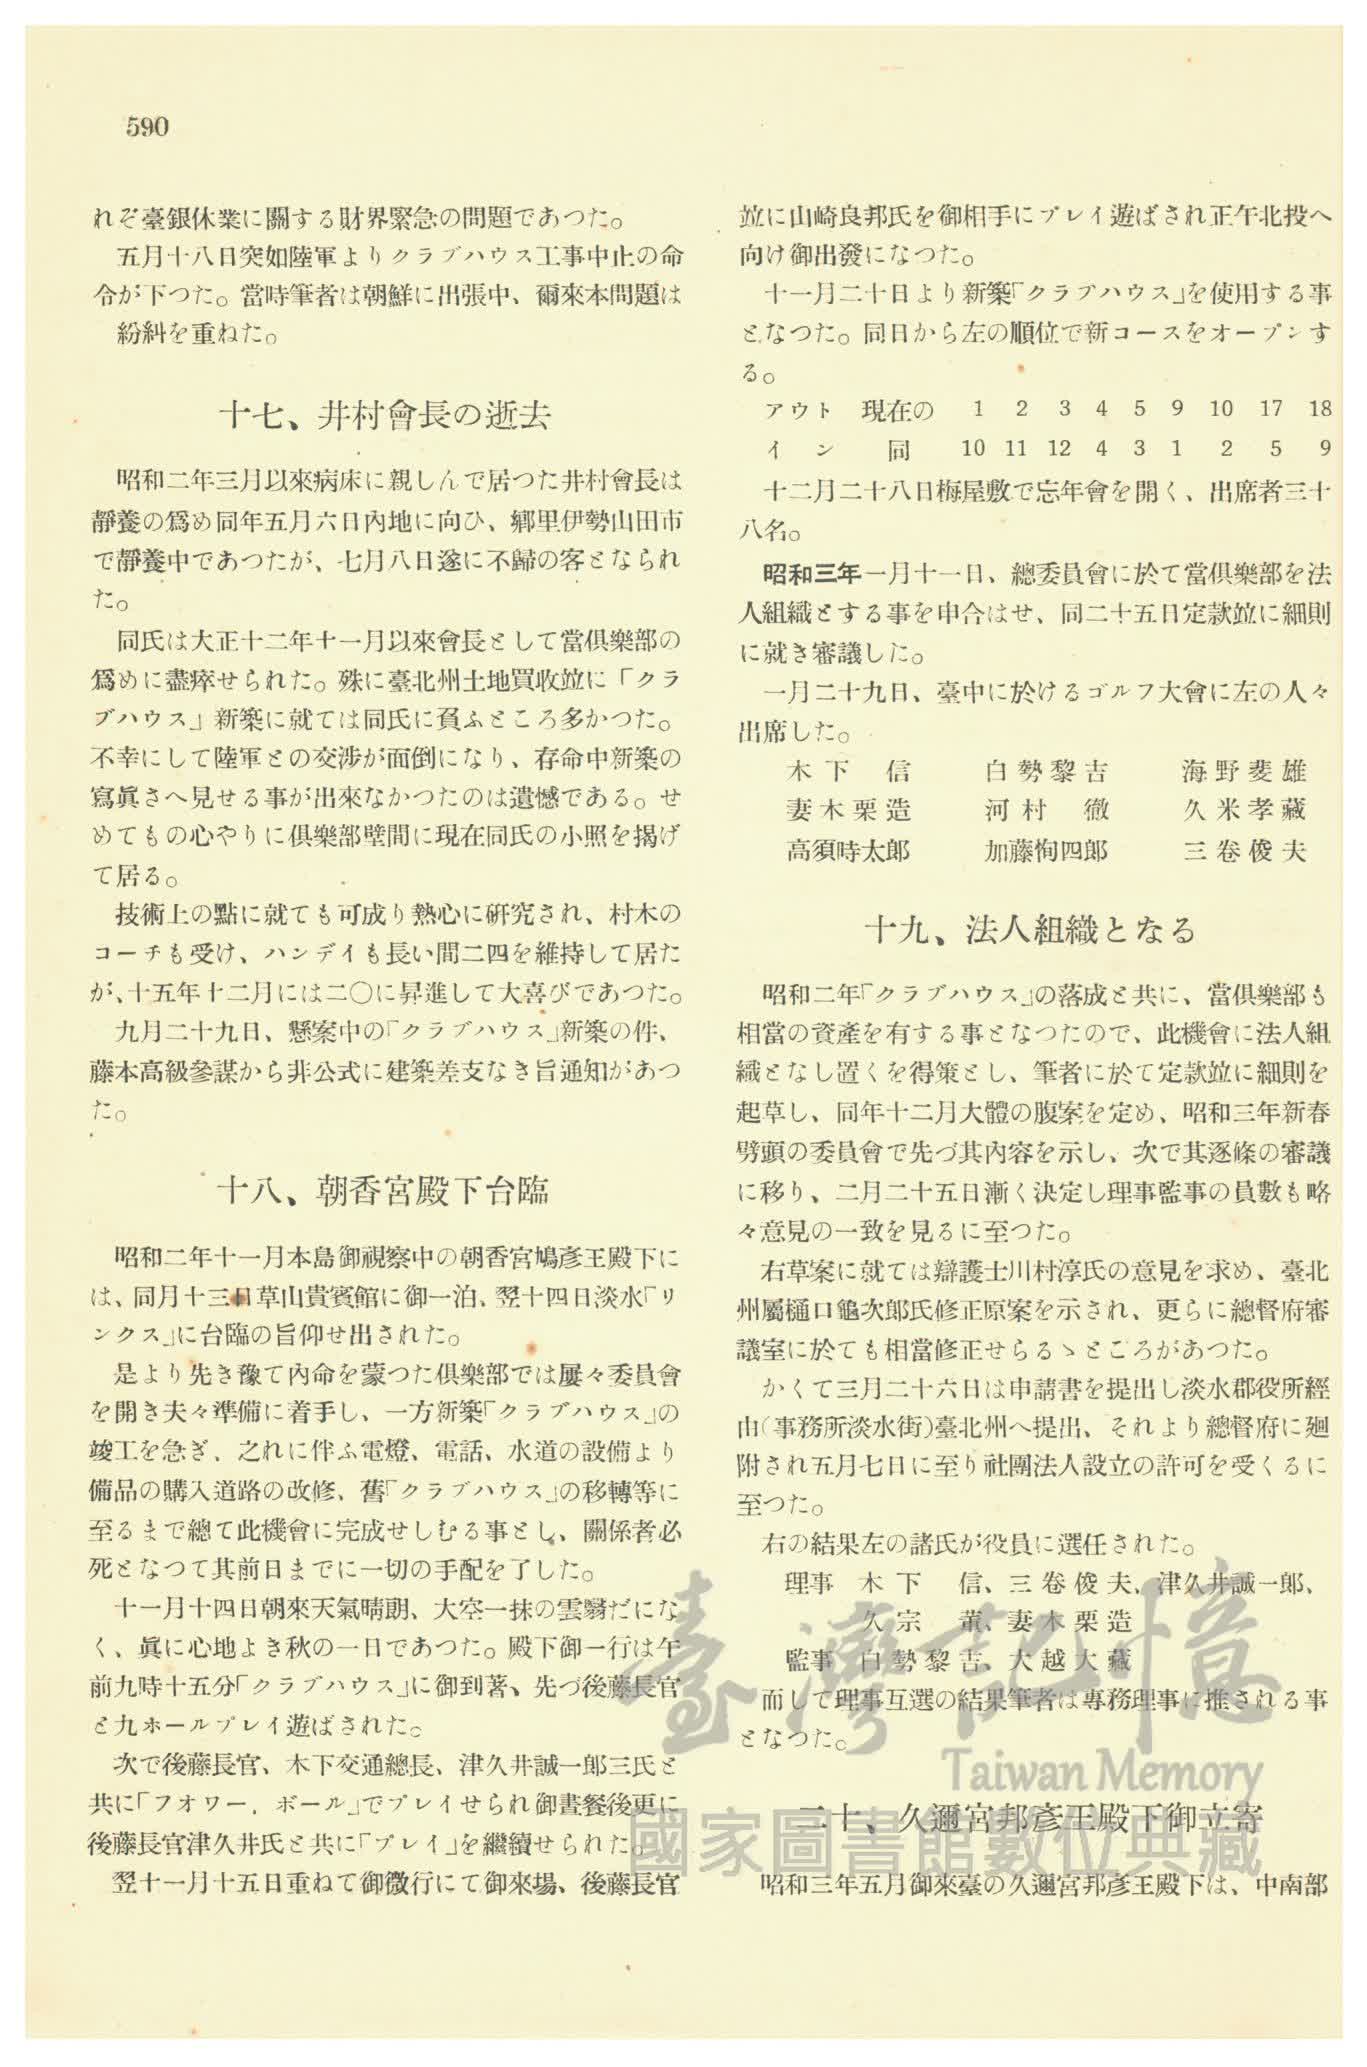 590
れぞ臺銀休業に關する財界緊急の問題であつた。
五月十八日突如陸軍よりクラブハウス工事中止の命
令が下つた。當時筆者は朝鮮に出張中、爾來本問題は
紛糾を重ねた。
十七、井村會長の逝去
昭和二年三月以來病床に親しんで居つた井村會長は
靜養の爲め同年五月六日內地に向ひ、鄕里伊勢山田市
で靜養中であつたが、七月八日遂に不歸の客となられ
た。
同氏は大正十二年十一月以來會長として當倶樂部の
爲めに盡瘁せられた。殊に臺北州土地買收竝に「クラ
ブハウス」新築に就ては同氏に負ふところ多かつた。
不幸にして陸軍との交渉が面倒になり、存命中新築の
寫眞さへ見せる事が出來なかつたのは遺憾である。せ
めてもの心やりに倶樂部壁間に現在同氏の小照を掲げ
て居る。
技術上の點に就ても可成り熱心に硏究され、村木の
コーチも受け、ハンデイも長い間二四を維持して居た
が、十五年十二月には二〇に昇進して大喜びであつた。
九月二十九日、懸案中の「クラブハウス」新築の件、
藤本高級參謀から非公式に建築差支なき旨通知があつ
た。
十八、朝香宮殿下台臨
昭和二年十一月本島御視察中の朝香宮鳩彥王殿下に
は、同月十三日草山貴賓館に御一泊、翌十四日淡水「リ
ンクス」に台臨の旨仰せ出された。
是より先き豫て內命を蒙つた倶樂部では屢々委員會
を開き夫々準備に着手し、一方新築「クラブハウス」の
竣工を急ぎ、之れに伴ふ電燈、電話、水道の設備より
備品の購入道路の改修、舊「クラブハウス」の移轉等に
至るまで總て此機會に完成せしむる事とし、關係者必
死となつて其前日までに一切の手配を了した。
十一月十四日朝來天氣晴朗、大空一抹の雲翳だにな
く、眞に心地よき秋の一日であつた。殿下御一行は午
前九時十五分「クラブハウス」に御到著、先づ後藤長官
と九ホールプレイ遊ばされた。
次で後藤長官、木下交通總長、津久井誠一郞三氏と
共に「フオワー．ボール」でプレイせられ御晝餐後更に
後藤長官津久井氏と共に「プレイ」を繼續せられた。
翌十一月十五日重ねて御微行にて御來場、後藤長官
竝に山崎良邦氏を御相手にプレイ遊ばされ正午北投へ
向け御出發になつた。
十一月二十日より新築「クラブハウス」を使用する事
となつた。同日から左の順位で新コースをオープンす
る。
アウト 現在の 1 2 3 4 5 9 10 17 18
イン 同 10 11 12 4 3 1 2 5 9
十二月二十八日梅屋敷で忘年會を開く、出席者三十
八名。
昭和三年一月十一日、總委員會に於て當倶樂部を法
人組織とする事を申合はせ、同二十五日定款竝に細則
に就き審議した。
一月二十九日、臺中に於けるゴルフ大會に左の人々
出席した。
木下信 白勢黎吉 海野斐雄
妻木栗造 河村徹 久米孝藏
高須時太郞 加藤恂四郞 三卷俊夫
十九、法人組織となる
昭和二年「クラブハウス」の落成と共に、當倶樂部も
相當の資產を有する事となつたので、此機會に法人組
織となし置くを得策とし、筆者に於て定款竝に細則を
起草し、同年十二月大體の腹案を定め、昭和三年新春
劈頭の委員會で先づ其內容を示し、次で其逐條の審議
に移り、二月二十五日漸く決定し理事監事の員數も略
々意見の一致を見るに至つた。
右草案に就ては辯護士川村淳氏の意見を求め、臺北
州屬樋口龜次郞氏修正原案を示され、更らに總督府審
議室に於ても相當修正せらるゝところがあつた。
かくて三月二十六日は申請書を提出し淡水郡役所經
由（事務所淡水街）臺北州へ提出、それより總督府に廻
附され五月七日に至り社團法人設立の許可を受くるに
至つた。
右の結果左の諸氏が役員に選任された。
理事 木下信、三卷俊夫、津久井誠一郞、
久宗董、妻木栗造
監事 白勢黎吉、大越大藏
而して理事互選の結果筆者は專務理事に推される事
となつた。
二十、久邇宮邦彥王殿下御立寄
昭和三年五月御來臺の久邇宮邦彥王殿下は、中南部
臺灣記憶
Taiwan Memory
國家圖書館數位典藏